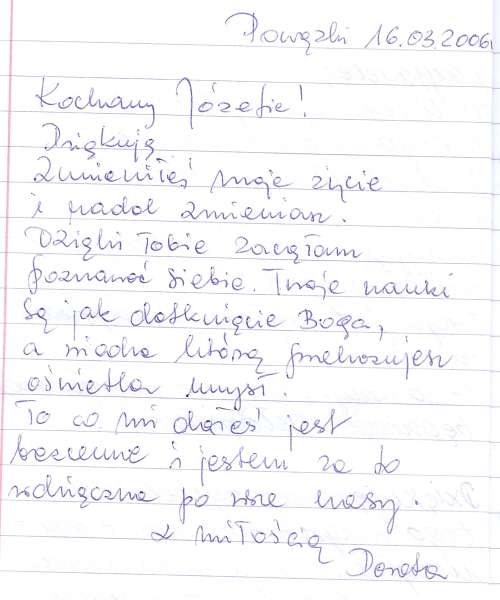 Powązki 16.03.2006r
Kochany Józefie!
Dziękuję
Zmieniłeś moje życie
i nadal zmieniasz.
Dzięki Tobie zaczęłam
poznawać siebie. Twoje nauki
są jak dotknięcie Boga,
a wiedza którą przekazujesz
oświetla umysł.
To co mi dałeś jest
bezcenne i jestem za to
wdzięczna po wsze czasy.
z miłością
Donata